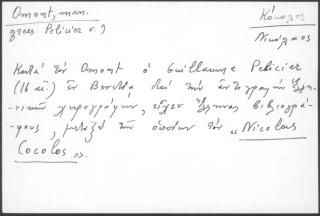 Omont, man.
grecs Pelicier σ. 9
Κόκολος
Νικόλαος
Κατά τόν Omont ὁ Guillaume Pelicier
(16 αἰ.) ἐν Βενετίᾳ, διά τήν ἀντιγραφήν ἑλλη-
νικῶν χειρογράφων, εἶχεν Ἕλληνας βιβλιογρά-
φους, μεταξύ τῶν ὁποίων τόν "Nicolaus
Cocolos".